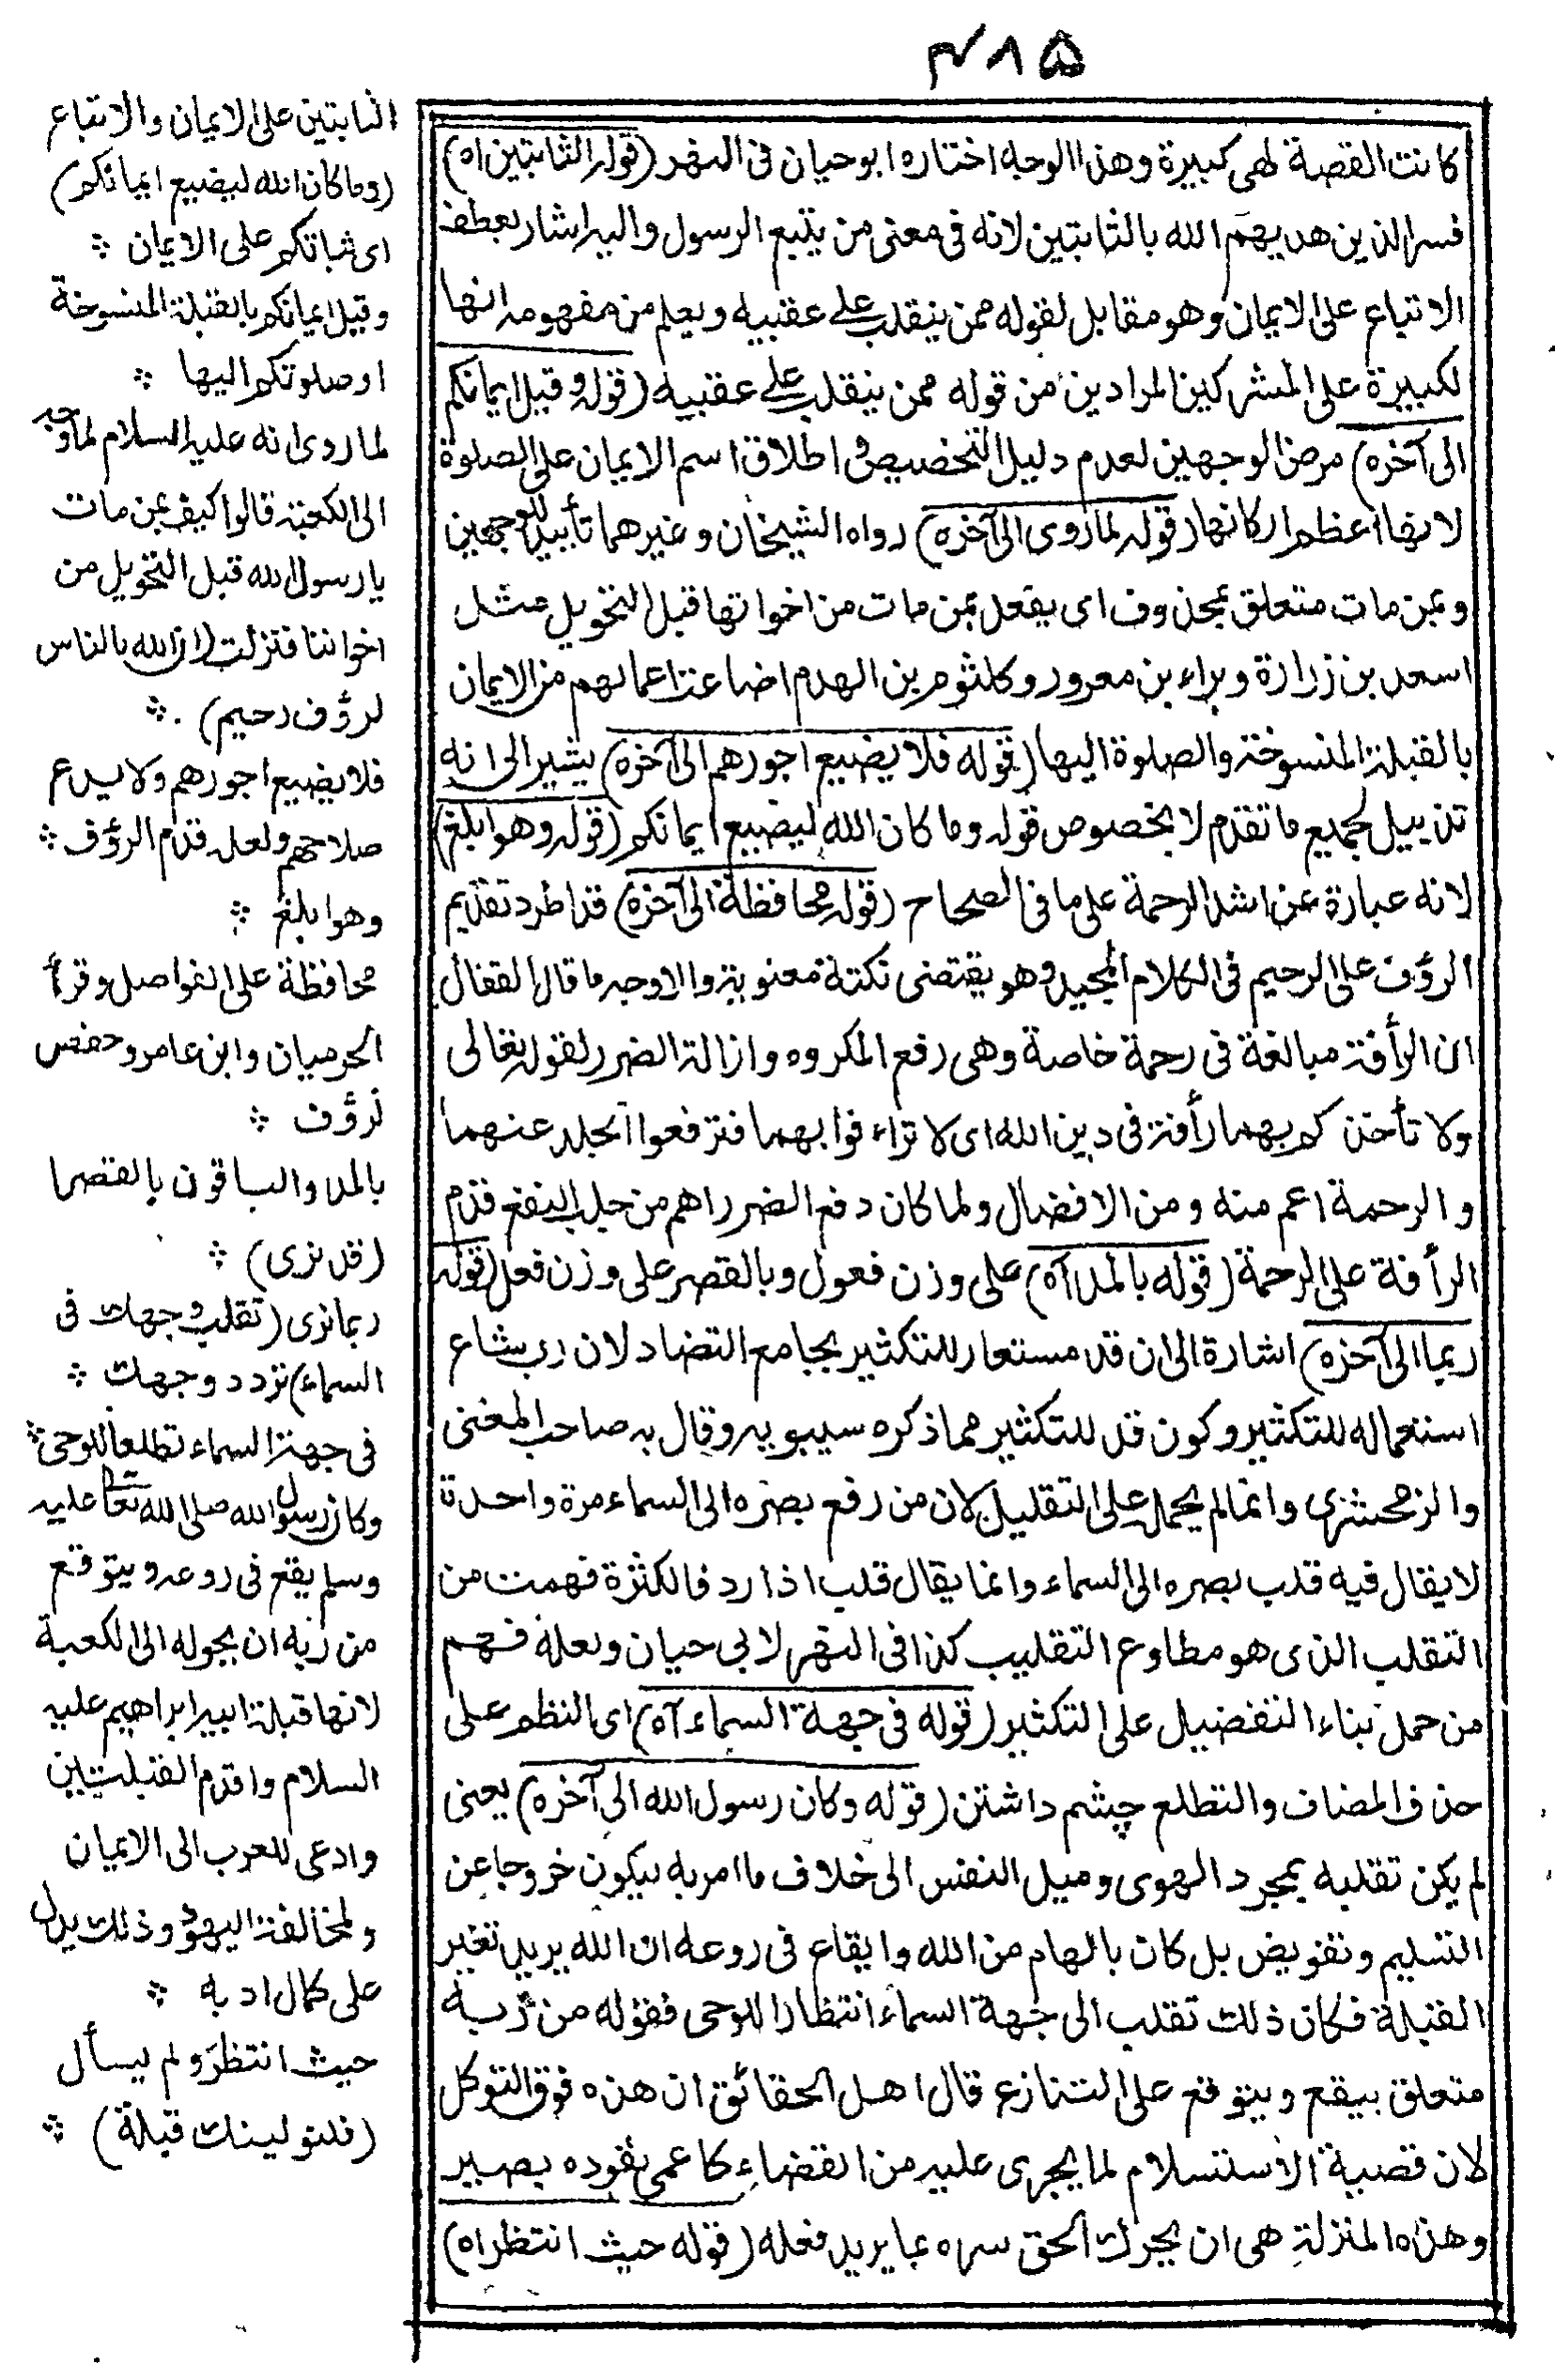 ٤٨٥
كانت القصة لهى كبيرة وهذا الوجه اختاره ابوحيان فى النهر (قوله الثابتين اه)
فسر الذين هديهم الله بالثابتين لانه فى معنى من يتبع الرسول واليه اشار بعطف
الاتباع على الايمان وهو مقابل لقوله ممن ينقلب على عقبيه ويعلم من مفهومه انها
لكبيرة على المشركين المرادين من قوله ممن ينقلب على عقبيه (قوله وقيل ايمانكم
الى آخره) مرض الوجهين لعدم دليل التخصيص واطلاق اسم الايمان على الصلوة
لانها اعظم اركانها (قوله لما روى الى آخره) رواه الشيخان وغيرهما تأييد للوجهين
وبمن مات متعلق بمحذوف اى يفعل بمن مات من اخواتها قبل التحويل مثل
اسعد بن زرارة وبراء بن معرور وكلثوم بن الهدم اضاعت اعمالهم من الايمان
بالقبلة المنسوخة والصلوة اليها (قوله فلا يضيع اجورهم الى آخره) يشير الى انه
تذييل لجميع ما تقدم لا بخصوص قوله وما كان الله ليضيع ايمانكم (قوله وهو ابلغ)
لانه عبارة عن اشد الرحمة على ما فى الصحاح (قوله محافظة الى آخره) قد اطرد تقديم
الرؤف على الرحيم فى الكلام المجيد وهو يقتضى نكتة معنوية والاوجه ما قال القفال
ان الرأفة مبالغة فى رحمة خاصة وهى رفع المكروه وازالة الضرر لقوله تعالى
ولا تأخذكم بهما رأفة فى دين الله اى لا تراءفوا بهما فترفعوا الجلد عنهما
والرحمة اعم منه ومن الافضال ولما كان دفع الضرر اهم من جلب النفع قدم
الرأفة على الرحمة (قوله بالمد آه) على وزن فعول وبالقصر على وزن فعل (قوله
ربما الى آخره) اشارة الى ان قد مستعار للتكثير بجامع التضاد لان رب شاع
استعماله للتكثير وكون قد للتكثير مما ذكره سيبويه وقال به صاحب المغنى
والزمخشرى وانما لم يحمل على التقليل لان من رفع بصره الى السماء مرة واحدة
لا يقال فيه قلب بصره الى السماء وانما يقال قلب اذا ردد فالكثرة فهمت من
التقلب الذى هو مطاوع التقليب كذا فى النهر لابى حيان ولعله فهم
من حمل بناء التفضيل على التكثير (قوله فى جهة السماء آه) اى النظم على
حذف المضاف والتطلع چشم داشتن (قوله وكان رسول الله الى آخره) يعنى
لم يكن تقلبه بمجرد الهوى وميل النفس الى خلاف ما امر به ليكون خروجا عن
التسليم وتفويض بل كان بالهام من الله وايقاع فى روعه ان الله يريد تغير
القبلة فكان ذلك تقلب الى جهة السماء انتظارا للوحى فقوله من ربه
متعلق بيقع ويتوقع على التنازع قال اهل الحقائق ان هذه فوق التوكل
لان قصية الاستسلام لما يجرى عليه من القضاء كاعمى يقوده بصير
وهذه المنزلة هى ان يحرك الحق سره بما يريد فعله (قوله حيث انتظر اه)
الثابتين على الايمان والاتباع
(وما كان الله ليضيع ايمانكم)
اى ثباتكم على الايمان
وقيل ايمانكم بالقبلة المنسوخة
او صلوتكم اليها
لما روى انه عليه السلام لما وجه
الى الكعبة قالوا كيف بمن مات
يا رسول الله قبل التحويل من
اخواننا فنزلت (ان الله بالناس
لرؤف رحيم)
فلا يضيع اجورهم ولا يدع
صلاحهم ولعله قدم الرؤف
وهو ابلغ
محافظة على الفواصل وقرأ
الحرميان وابن عامر وحفص
لرؤف
بالمد والباقون بالقصر
(قد نرى)
ربما نرى (تقلب وجهك فى
السماء) تردد وجهك
فى جهة السماء تطلعا للوحى
وكان رسول الله صلى الله تعالى عليه
وسلم يقع فى روعه ويتوقع
من ربه ان يحوله الى الكعبة
لانها قبلة ابيه ابراهيم عليه
السلام واقدم القبلتين
وادعى للعرب الى الايمان
ولمخالفة اليهود وذلك يدل
على كمال ادبه
حيث انتظر ولم يسأل
(فلنولينك قبلة)